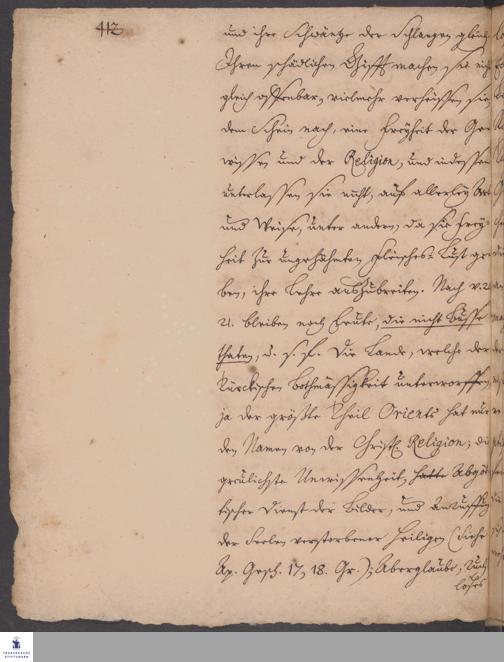 412
und ihre Schwäntze der Schlangen gleich
Ihren schädlichen Gifft machen sie nicht
gleich offenbar, vielmehr verheissen sie
dem Schein nach, eine Freyheit der Ge-
wissen und der Religion, und indessen
unterlassen sie nicht, auf allerley Art
und Weise, unter andern, da sie Frey-
heit zur ungezähmten Fleisches-Lust ge-
ben, ihre Lehre auszubreiten. Nach v. 20
21. bleiben noch Leute, die nicht Busse
thaten, d. s. f. Die Lande, welche der
Türckischen Bothmässigkeit unterworffen,
ja der größte Theil Orients hat nur
den Namen von der Christl. Religion; die
greulichste Unwissenheit, Abgöt-
tischer Dienst der Bilder, und Anruffung
der Seelen verstorbener Heiligen (siehe
Ap. Gesch. 17, 18. Gr.); Aberglaube, Ruch-
loses
FRANCKESCHE
STIFTUNGEN